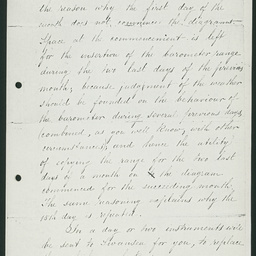 the reason why the first day of the
month does not commence the diagrams.
Space at the commencement is left
for the insertion of the barometer range
during the two last days of the previous
month, because judgment of the weather
should be founded on the behaviour of
the barometer during several previous days
combined, as you well know, with other
circumstances and hence the utility
of copying the range for the two last
days of a month on the diagram
commenced for the succeeding month.
The same reasoning explains why the
15th day is repeated.
In a day or two instruments will
be sent to for you, to replace